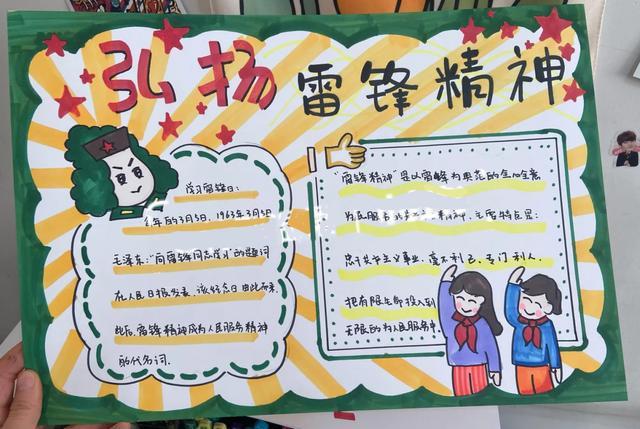 弘扬雷锋精神
学习雷锋日:
每年的3月5日,1963年3月5日
毛泽东:“向雷锋同志学习”的题词
在人民日报发表,该纪念日由此而来.
此后,雷锋精神成为人民服务精神
的代名词.
“雷锋精神”是以雷锋为典范的全心全意
为民服务
精神,主席特点是:
忠于共产主义事业,毫不利己,专门利人.
把有限生命投入到
无限的为人民服务中.